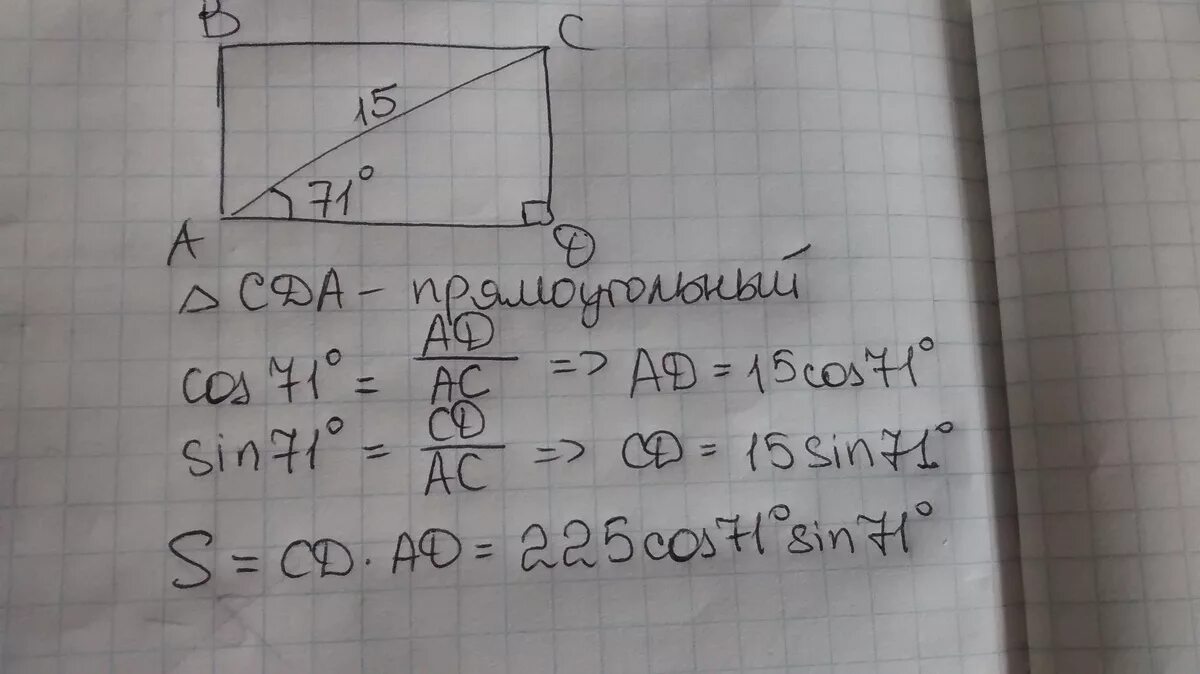 B
C
15
71°
A
D
△ CDA - прямоугольный
cos 71° = AD/AC => AD = 15cos71°
sin71° = CD/AC => CD = 15 sin71°
S = CD · AD = 225cos71°sin71°